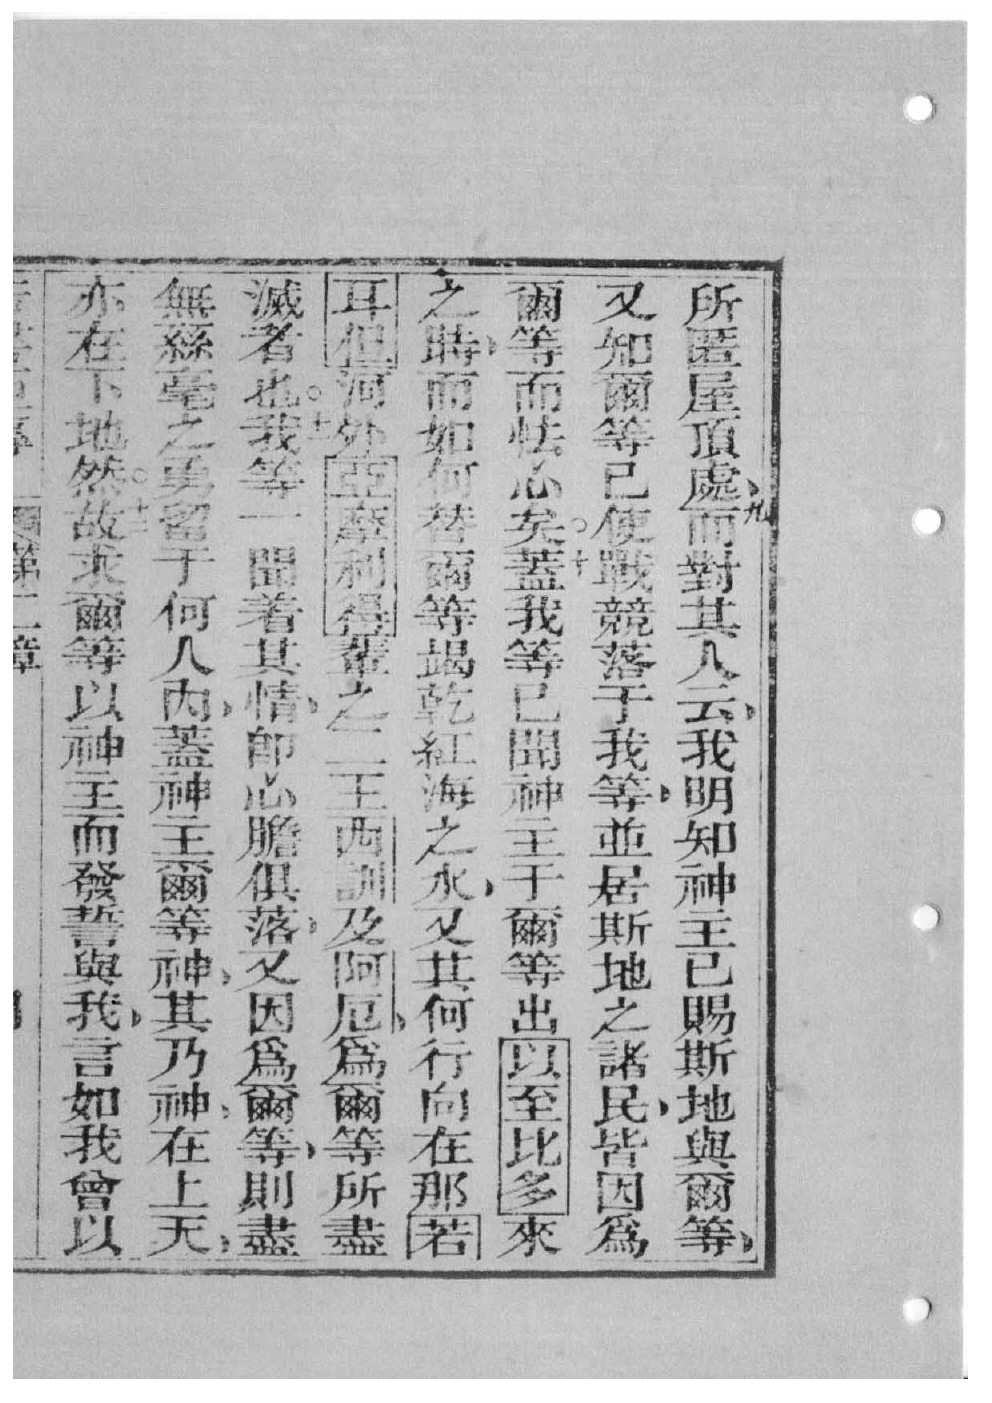 所匿屋頂處、九而對其人云、我明知神主已賜斯地與爾等、
又知爾等已使戰競落于我等、並居斯地之諸民、皆因爲
爾等而怯心矣。十蓋我等已聞神主于爾等出以至比多來
之時、而如何替爾等竭乾紅海之水、又其何行向在那若
耳但河外亞摩利得輩之二王西訓及阿厄、爲爾等所盡
滅者也。十一我等一聞着其情、卽心膽俱落、又因爲爾等、則盡
無絲毫之勇留于何人內、蓋神主爾等神、其乃神、在上天、
亦在下地然。十二故求爾等以神主而發誓與我、言如我曾以
第二章